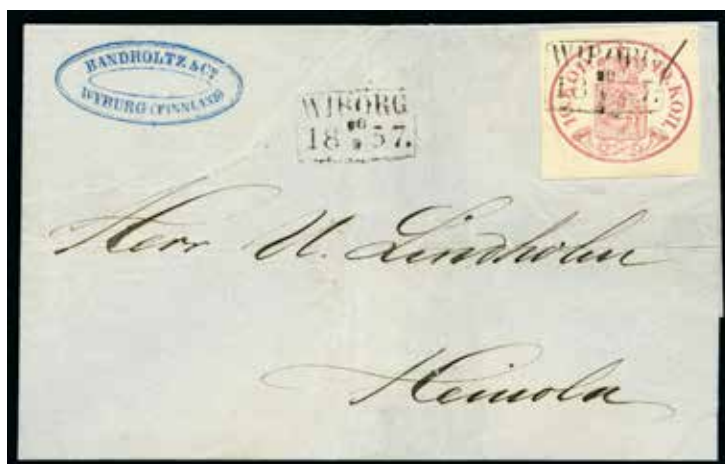 HANDHOLTZ & Cº
WYBURG (FINNLAND)
WIBORG
18 57.
WIBORG
10 KOP. KOП.
Herr U. Lindholm
Heinola